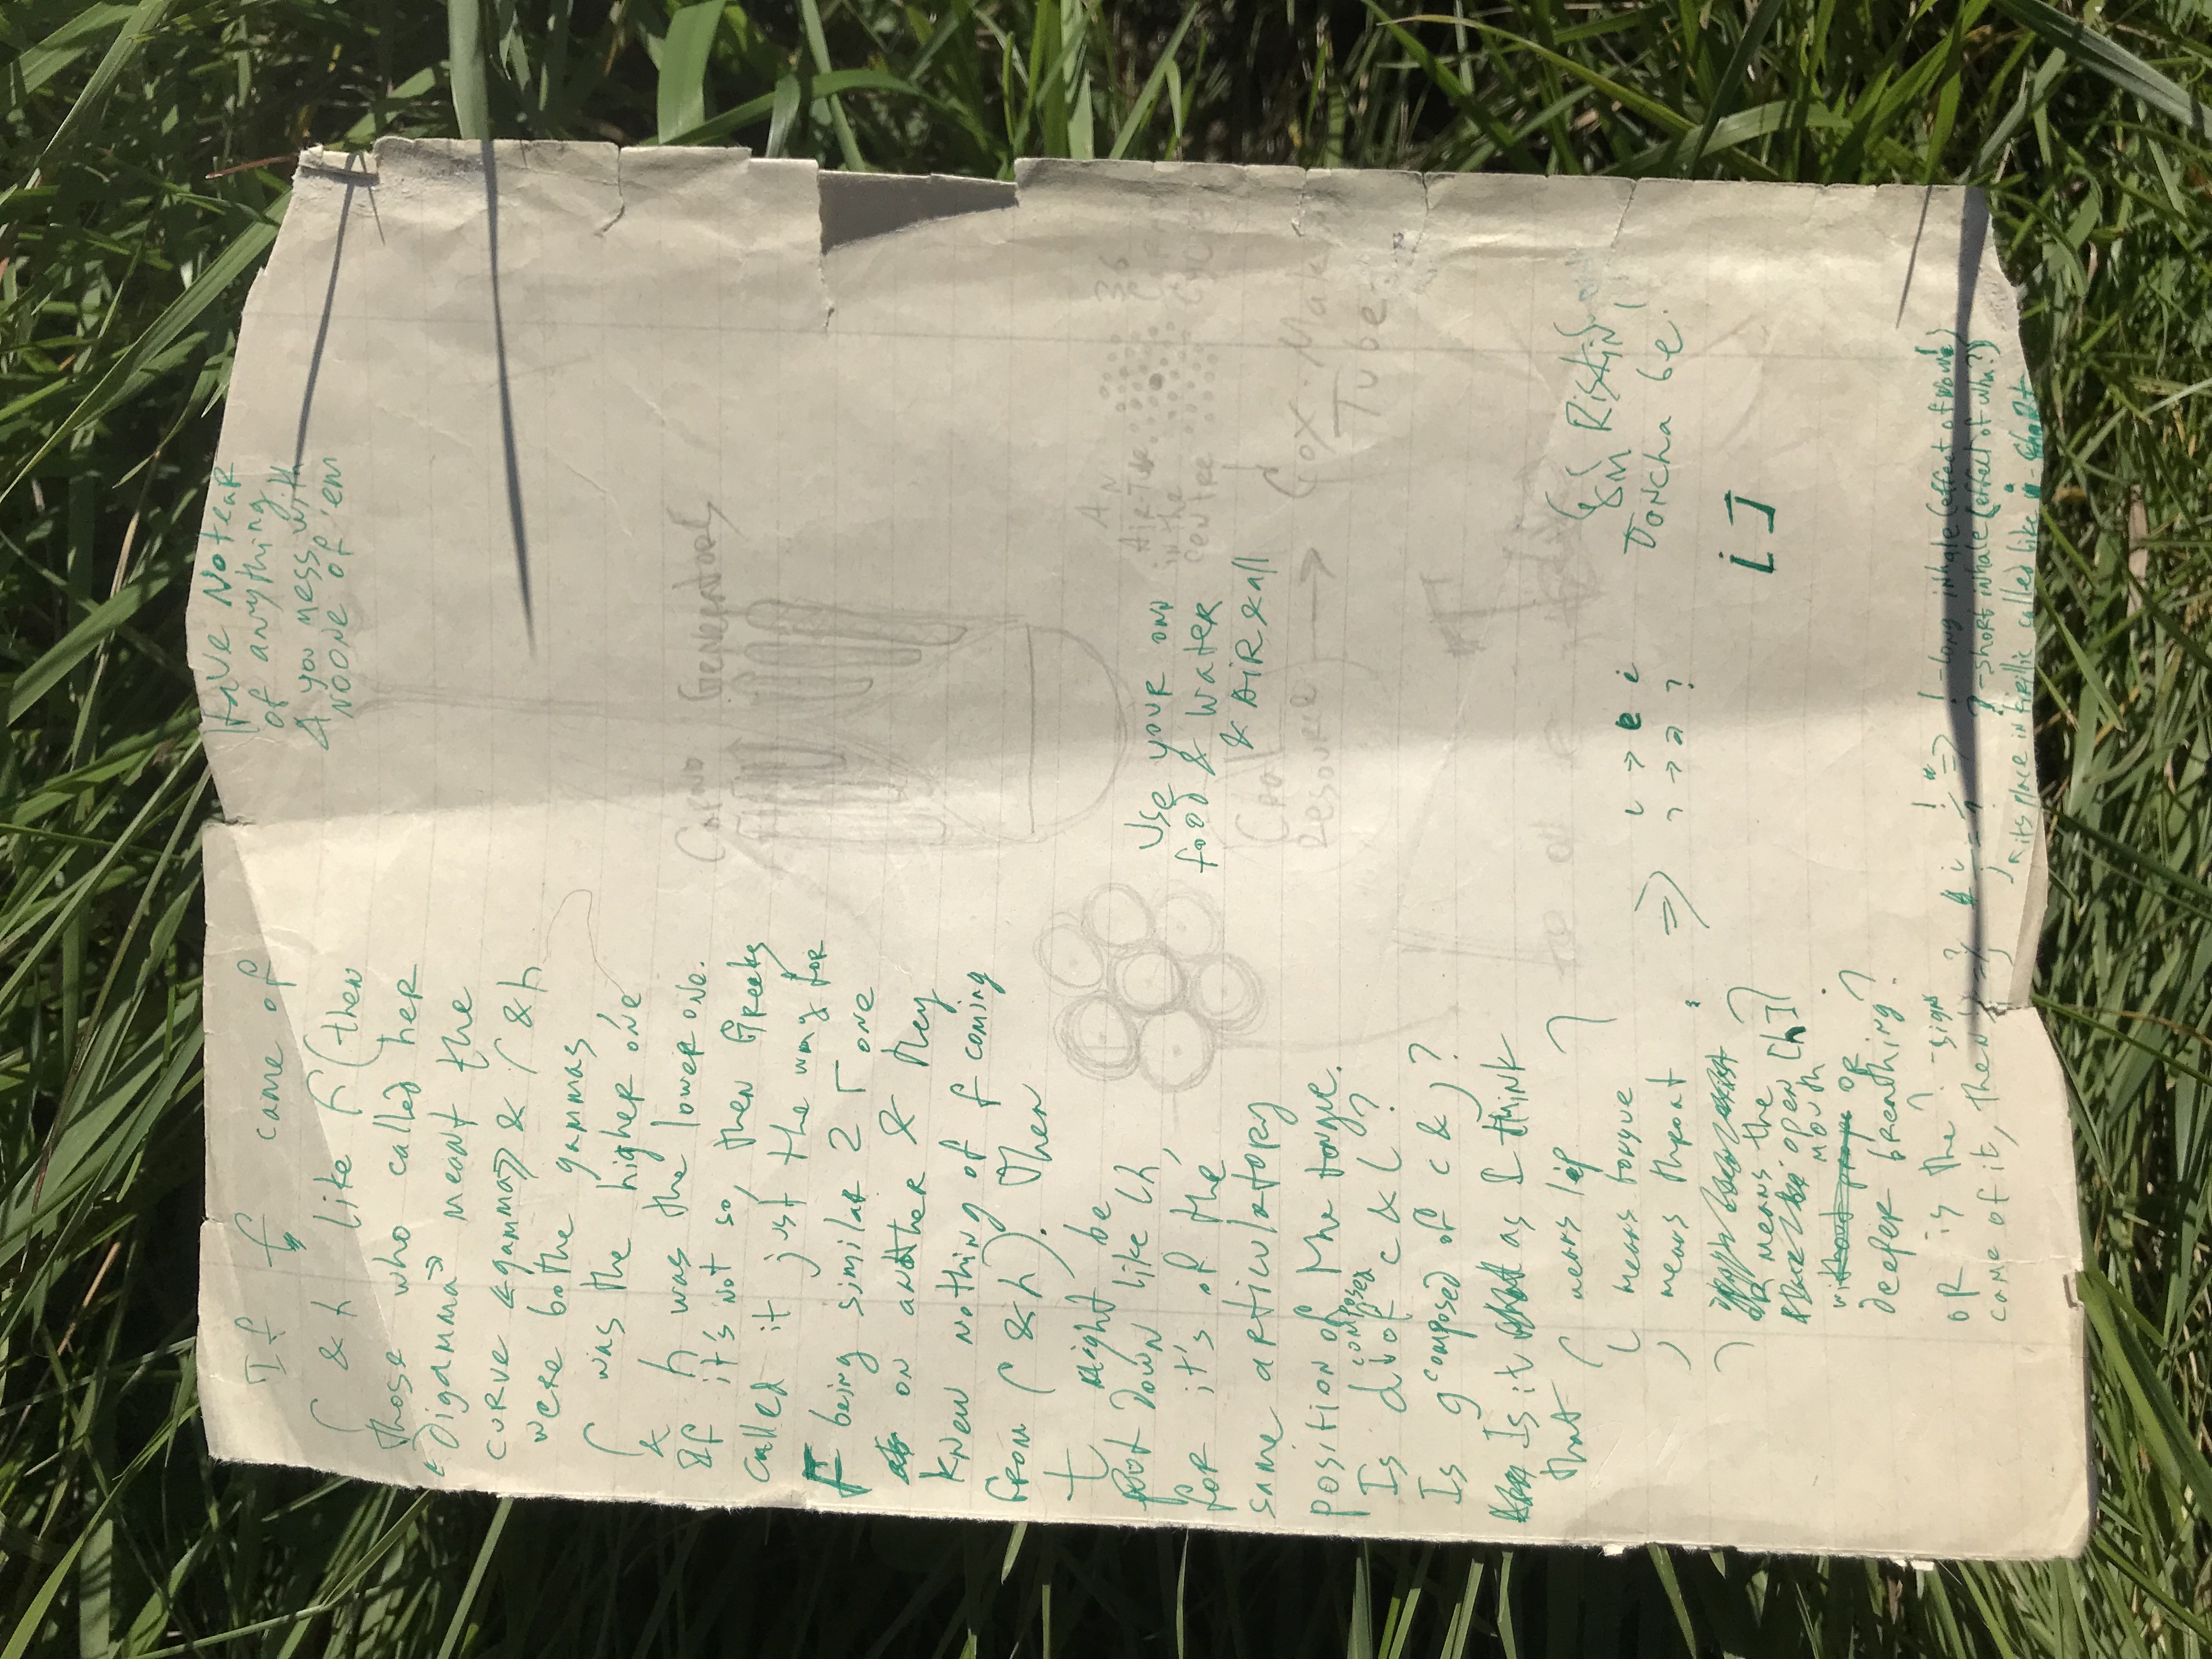 If f came of
ʃ & h like F (then
those who called her
"Digamma" meant the
curve «gamma» & ʃ & h
were bothe gammas,
ʃ was the higher one
& h was the lower one.
If it's not so, then Greeks
called it just the way for
F being similar 2 Γ one
on another & they
knew nothing of f coming
from ʃ & h). Then
t might be
put down like lh,
for it's of the
same articulatory
position of the tongue.
Is d composed of c & l?
Is g composed of c & j?
Is it as I think
that ( means lip
means tongue
) means throat
means the
open [h]
mouth
or
deeper breathing?
or is the ? -sign
came of it, then
⇒
! -long inhale (effect of wow!)
? -short inhale (effect of wha?)
its place in kirillic called like i-short
Have No fear
of anything
& you mess with
NOONE of 'em
Generators
Use your own
food & water
& AiR & all
An
Air-Tube
in the
centre
36
Coal
Resource → Cox-Making
Tube
Riskin
Doncha be!
[ ]